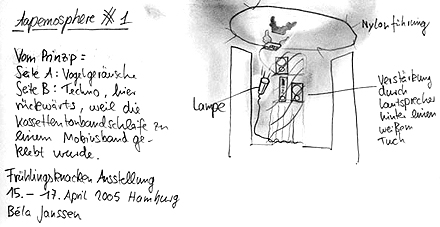 Aapemosphere # 1
Vom Prinzip =
Seite A: Vogelgeräusche
Seite B: Techno, hier
rückwärts, weil die
Kassettentonbandschleife zu
einem Mobiusband ge-
klebt wurde.
Frühlingsknacken Ausstellung
15. – 17. April 2005 Hamburg
Béla Janssen
Nylonführung
Lampe
Verstärkung
durch
Lautsprecher
hinter einem
weißem
Tuch